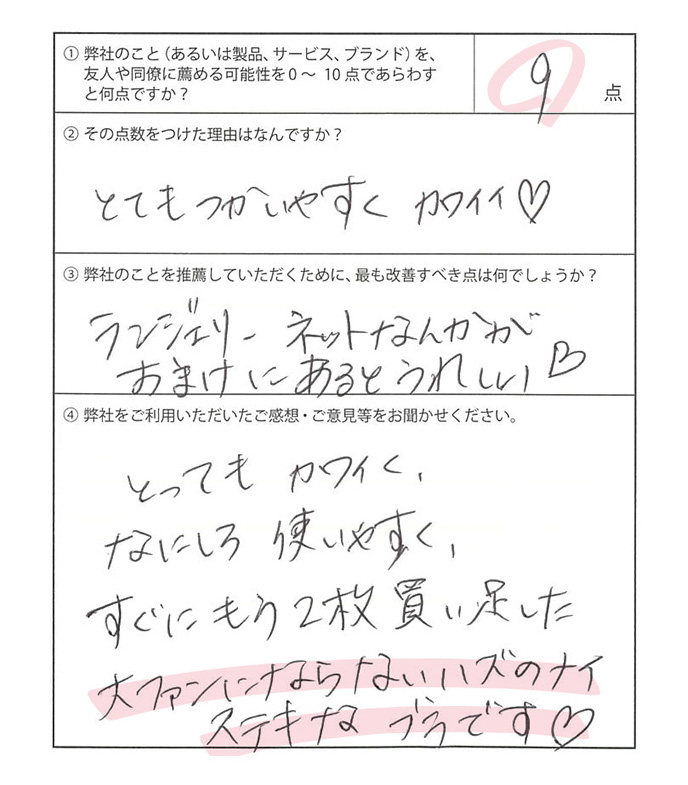 ① 弊社のこと（あるいは製品、サービス、ブランド）を、
友人や同僚に薦める可能性を0～ 10点であらわす
と何点ですか？
9 点
② その点数をつけた理由はなんですか？
とてもつかいやすく カワイイ♡
③ 弊社のことを推薦していただくために、最も改善すべき点は何でしょうか？
ランジェリーネットなんかが
おまけにあるとうれしい♡
④ 弊社をご利用いただいたご感想・ご意見等をお聞かせください。
とっても カワイく、
なにしろ 使いやすく、
すぐにもう2枚買い足した
大ファンにナならないハズのナイ
ステキな ブラです♡